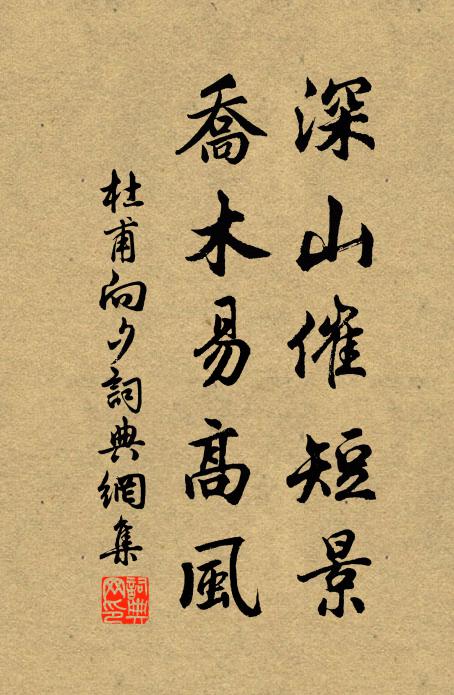 深山催短景
喬木易高風
杜甫向夕詞典網集
詞典網印